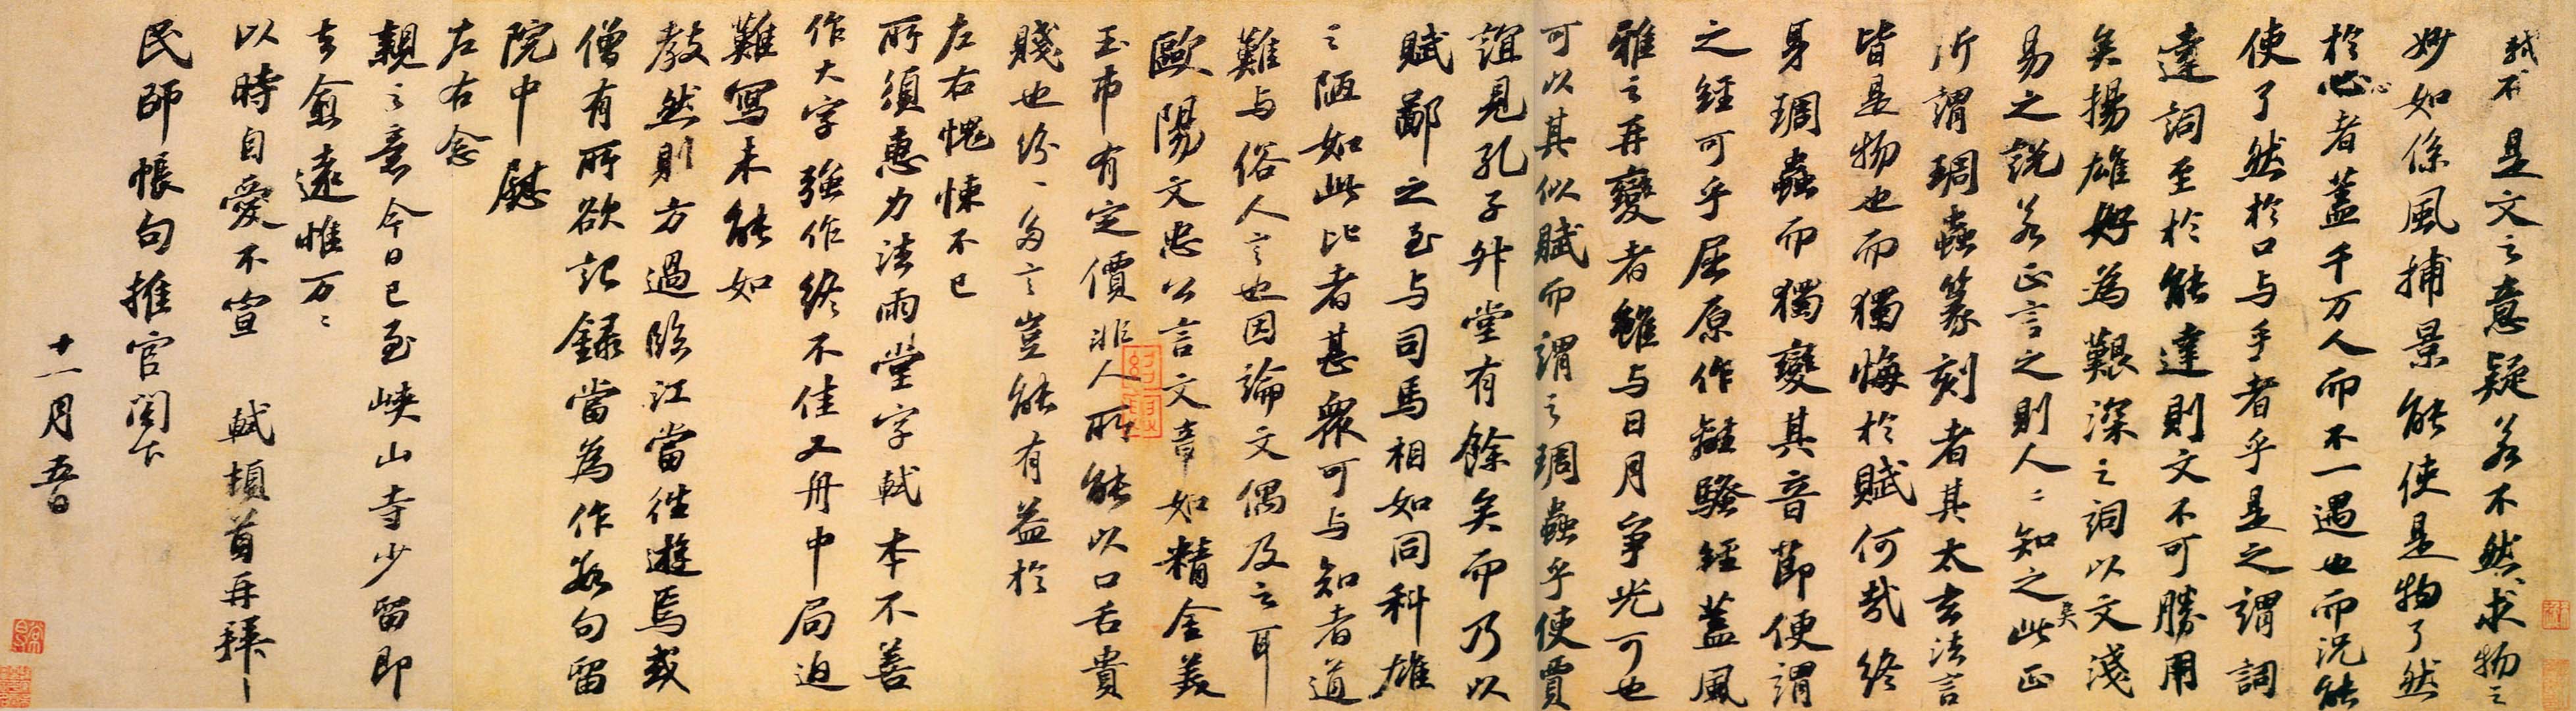 軾不 是文之意疑若不然求物之
妙如係風捕景能使是物了然
於心者蓋千万人而不一遇也而況能
使了然於口与手者乎是之謂詞
達詞至於能達則文不可勝用
矣揚雄好為艱深之詞以文淺
易之說若正言之則人〻知之矣此正
所謂琱蟲篆刻者其太玄法言
皆是物也而獨悔於賦何哉終
身琱蟲而獨變其音節便謂
之經可乎屈原作離騷經蓋風
雅之再變者雖与日月爭光可也
可以其似賦而謂之琱蟲乎使賈
誼見孔子升堂有餘矣而乃以
賦鄙之至与司馬相如同科雄
之陋如此比者甚眾可与知者道
難与俗人言也因論文偶及之耳
歐陽文忠公言文章如精金美
玉市有定價非人所能以口舌貴
賤也紛〻多言豈能有益於
左右愧悚不已
所須惠力法雨堂字軾本不善
作大字強作終不佳又舟中局迫
難寫未能如
教然則方過臨江當往遊焉或
僧有所欲記錄當為作數句留
院中慰
左右念
親之意今日已至峽山寺少留即
去愈遠惟万〻
以時自愛不宣 軾頓首再拜
民師帳句推官閣下
十一月五日